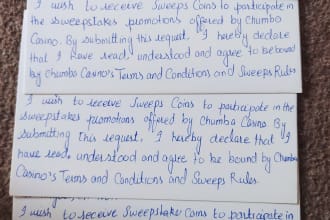 I wish to receive Sweeps Coins to participate in
the sweepstakes promotions offered by Chumba
Casino. By submitting this request, I hereby declare
that I have read, understood and agree to be bound
by Chumba Casino's Terms and Conditions and Sweeps Rules
I wish to receive Sweeps Coins to participate in the
sweepstakes promotions offered by Chumba Casino. By
submitting this request, I hereby declare that I
have read, understood and agree to be bound by Chumba
Casino's Terms and Conditions and Sweeps Rules.
I wish to receive Sweepstakes Coins to participate in